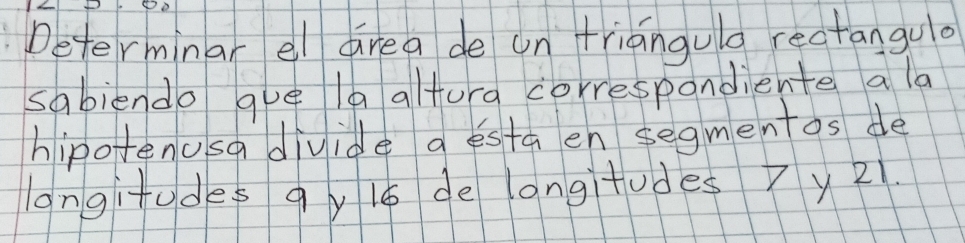 Determinar el área de un triángulo rectangulo
sabiendo que la altura correspondiente a la
hipotenusa divide a ésta en segmentos de
longitudes 9 y 16 de longitudes 7 y 21.